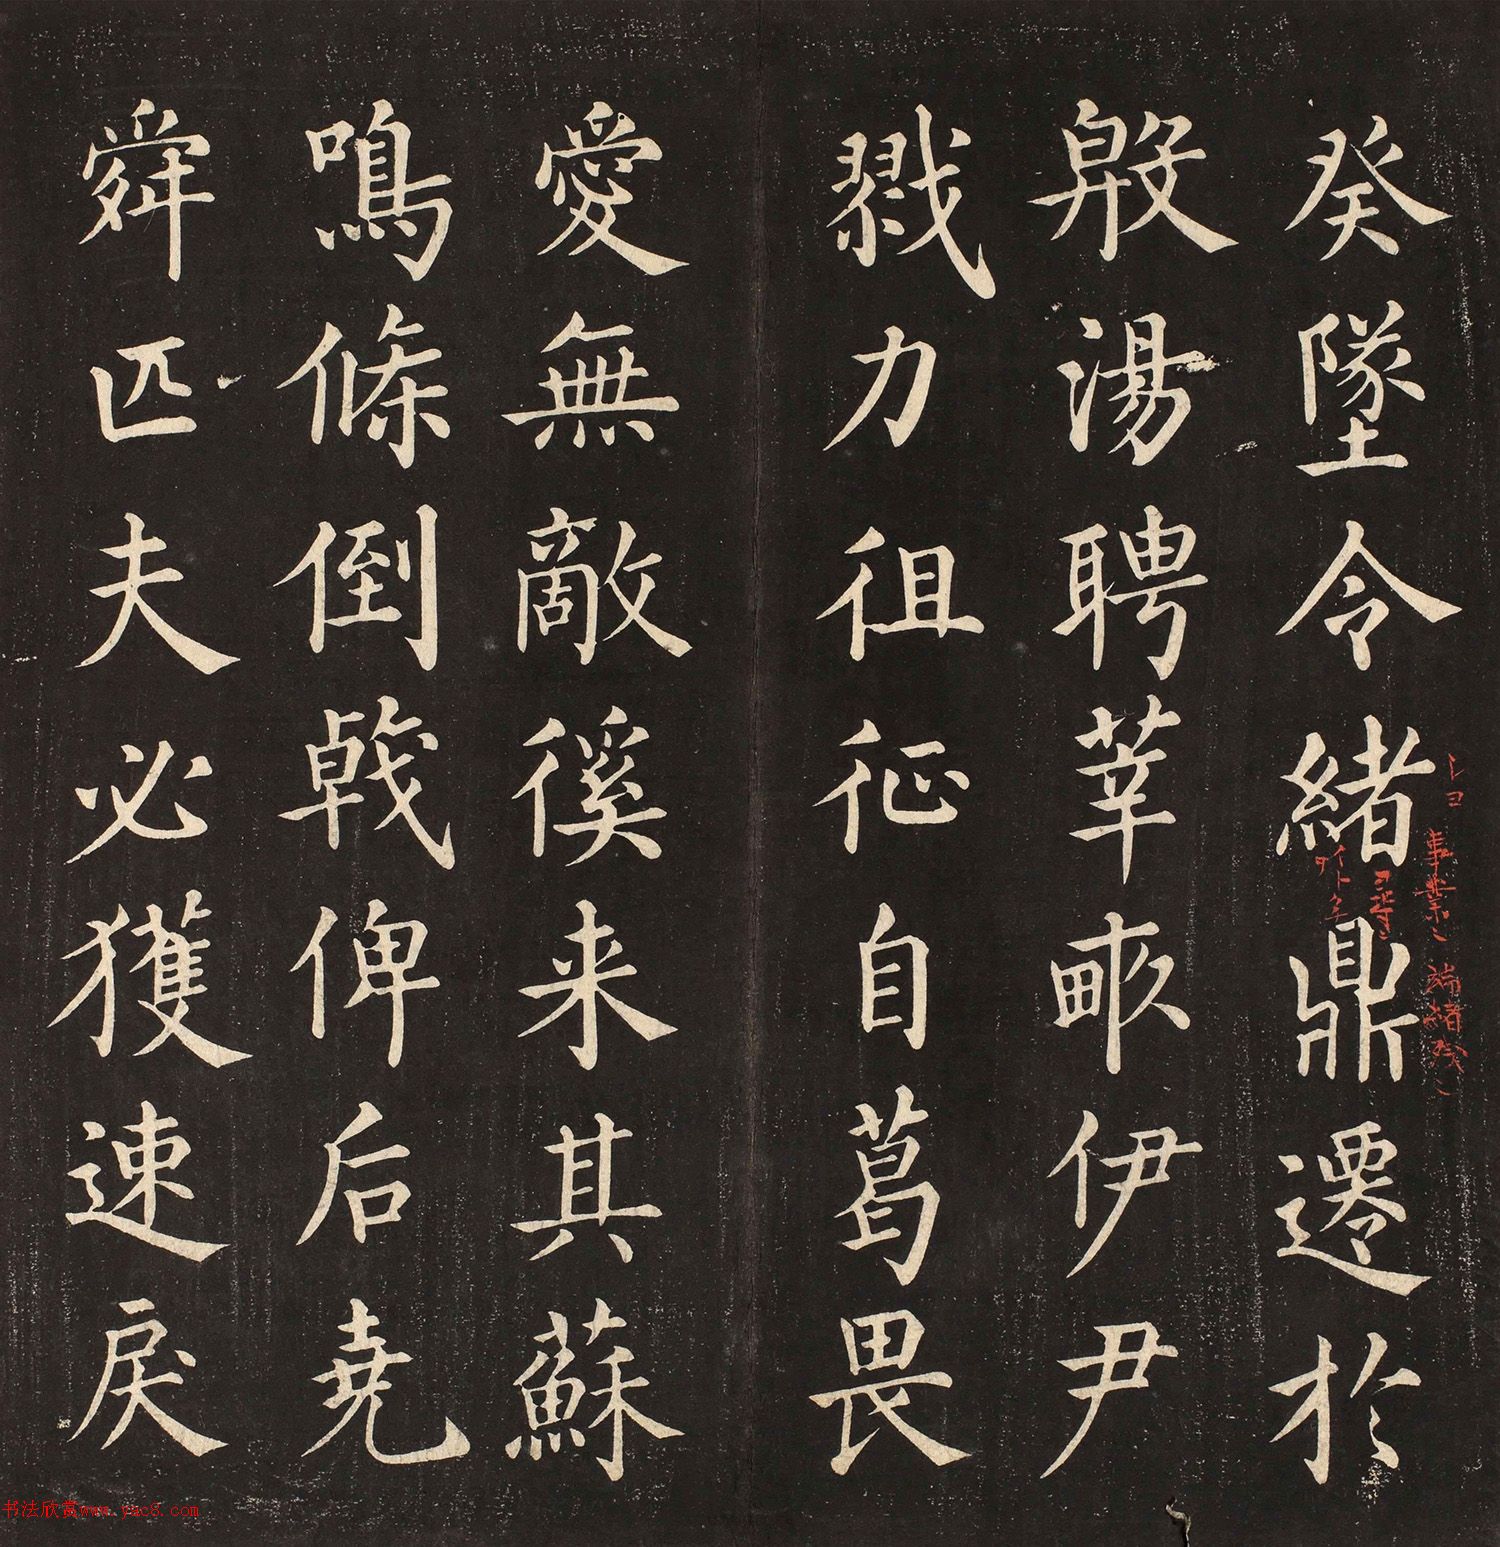 癸墜令緒鼎遷於
殷湯聘莘畎伊尹
戮力徂征自葛畏
愛無敵徯来其蘇
鳴條倒戟俾后堯
舜匹夫必獲速戾
事業
端緒
书法欣赏www.yac8.com